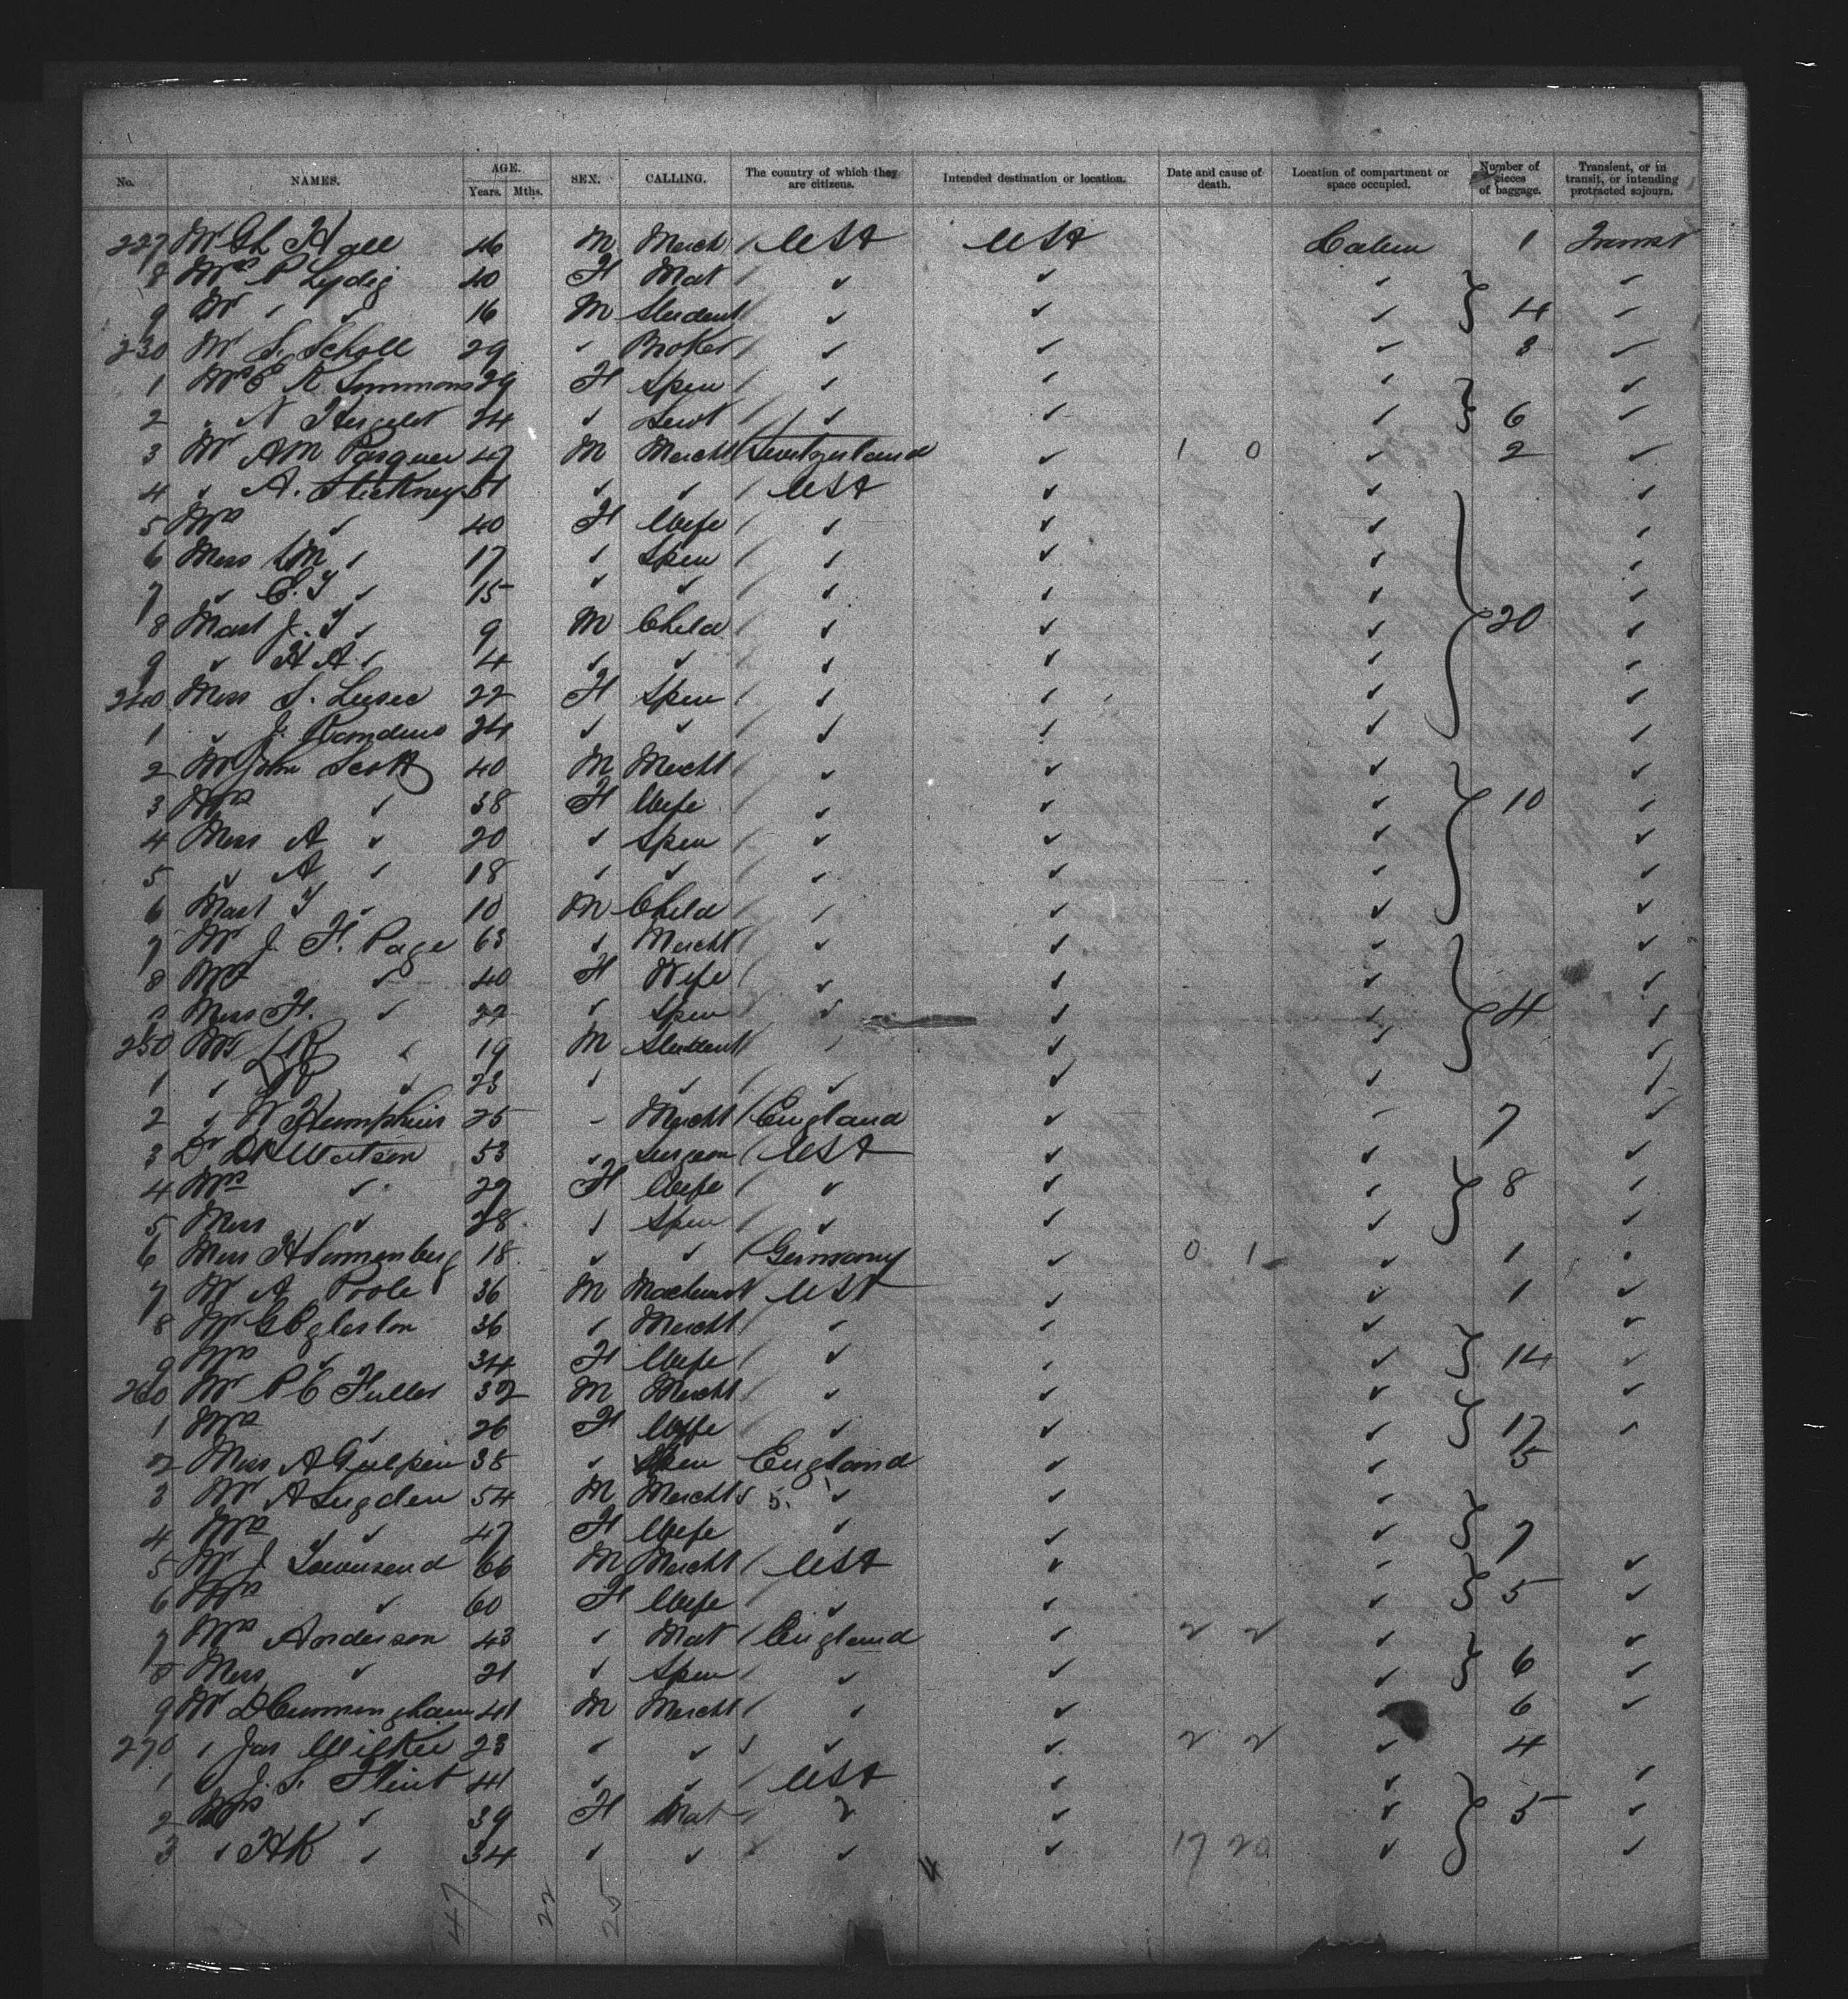 No. NAMES. AGE. Years. Mths. SEX. CALLING. The country of which they are citizens. Intended destination or location. Date and cause of death. Location of compartment or space occupied. Number of pieces of baggage. Transient, or in transit, or intending protracted sojourn.
227 Mr Hall 46 M Merch / USA USA 1
8 Mrs P Lydig 40 F Mat / ✓ ✓ ✓ ✓
9 Mr ✓ ✓ 16 M Student / ✓ ✓ ✓ } 4 ✓
230 Mr S. Scholl 29 ✓ Broker / ✓ ✓ ✓ 3 ✓
1 Mrs E R Simmons 29 F Spin / ✓ ✓ ✓ ✓
2 ✓ N 24 ✓ Servt / ✓ ✓ ✓ } 6 ✓
3 Mr AM 47 M Mercht / Switzerland ✓ 1 0 ✓ 2 ✓
4 ✓ A. Stickney 51 ✓ ✓ / USA ✓ ✓ ✓
5 Mrs ✓ 40 F Wife / ✓ ✓ ✓ ✓
6 Miss M ✓ 17 ✓ Spin / ✓ ✓ ✓ ✓
7 ✓ ✓ 15 ✓ ✓ / ✓ ✓ ✓ ✓
8 Mast J. ✓ 9 M Child / ✓ ✓ ✓ } 20 ✓
9 ✓ H A ✓ 4 ✓ ✓ / ✓ ✓ ✓ ✓
240 Miss S. 22 F Spin / ✓ ✓ ✓ ✓
1 ✓ J. 24 ✓ ✓ / ✓ ✓ ✓ ✓
2 Mr John Scott 40 M Mercht / ✓ ✓ ✓ ✓
3 Mrs ✓ 38 F Wife / ✓ ✓ ✓ } 10 ✓
4 Miss A ✓ 20 ✓ Spin / ✓ ✓ ✓ ✓
5 ✓ A ✓ 18 ✓ ✓ / ✓ ✓ ✓ ✓
6 Mast ✓ 10 M Child / ✓ ✓ ✓ ✓
7 Mr J. H. Page 63 ✓ Mercht / ✓ ✓ ✓ ✓
8 Mrs ✓ 40 F Wife / ✓ ✓ ✓ ✓
9 Miss H. ✓ 22 ✓ Spin / ✓ ✓ ✓ } 4 ✓
250 Mr ✓ 19 M Student / ✓ ✓ ✓ ✓
1 ✓ ✓ 23 ✓ ✓ / ✓ ✓ ✓ ✓
2 ✓ W Humphries 25 ✓ Mercht / England ✓ ✓ 7 ✓
3 Dr Watson 53 ✓ Surgeon / USA ✓ ✓ ✓
4 Mrs ✓ 29 F Wife / ✓ ✓ ✓ } 8 ✓
5 Miss ✓ 28 ✓ Spin / ✓ ✓ ✓ ✓
6 Miss H Sonnenberg 18 ✓ ✓ / Germany ✓ 0 1 ✓ 1
7 Mr A Poole 36 M Machinist USA ✓ ✓ 1 ✓
8 Mr G Egleston 36 ✓ Mercht / ✓ ✓ ✓ ✓
9 Mrs ✓ 34 F Wife / ✓ ✓ ✓ } 14 ✓
260 Mr P C Fuller 32 M Mercht / ✓ ✓ ✓ ✓
1 Mrs ✓ 26 F Wife / ✓ ✓ ✓ } 17 ✓
2 Miss A Gulpin 38 ✓ Spin England ✓ ✓ 5
3 Mr A Sugden 54 M Mercht 5. ✓ ✓ ✓
4 Mrs ✓ 47 F Wife ✓ ✓ ✓ } 7
5 Mr J Townsend 66 M Mercht / USA ✓ ✓ ✓
6 Mrs ✓ 60 F Wife / ✓ ✓ ✓ } 5 ✓
7 Mrs Anderson 43 ✓ Mat / England ✓ 2 2 ✓ ✓
8 Miss ✓ 21 ✓ Spin / ✓ ✓ ✓ } 6 ✓
9 Mr D Cunningham 41 M Mercht / ✓ ✓ ✓ 6 ✓
270 ✓ Jas Wilkie 23 ✓ ✓ ✓ ✓ ✓ 2 2 ✓ 4
1 ✓ J. S. Flint 41 ✓ ✓ / USA ✓ ✓ ✓
2 Mrs ✓ 39 F Mat / ✓ ✓ ✓ } 5 ✓
3 ✓ HK ✓ 34 ✓ ✓ ✓ ✓ 17 20 ✓ ✓
47 22 25